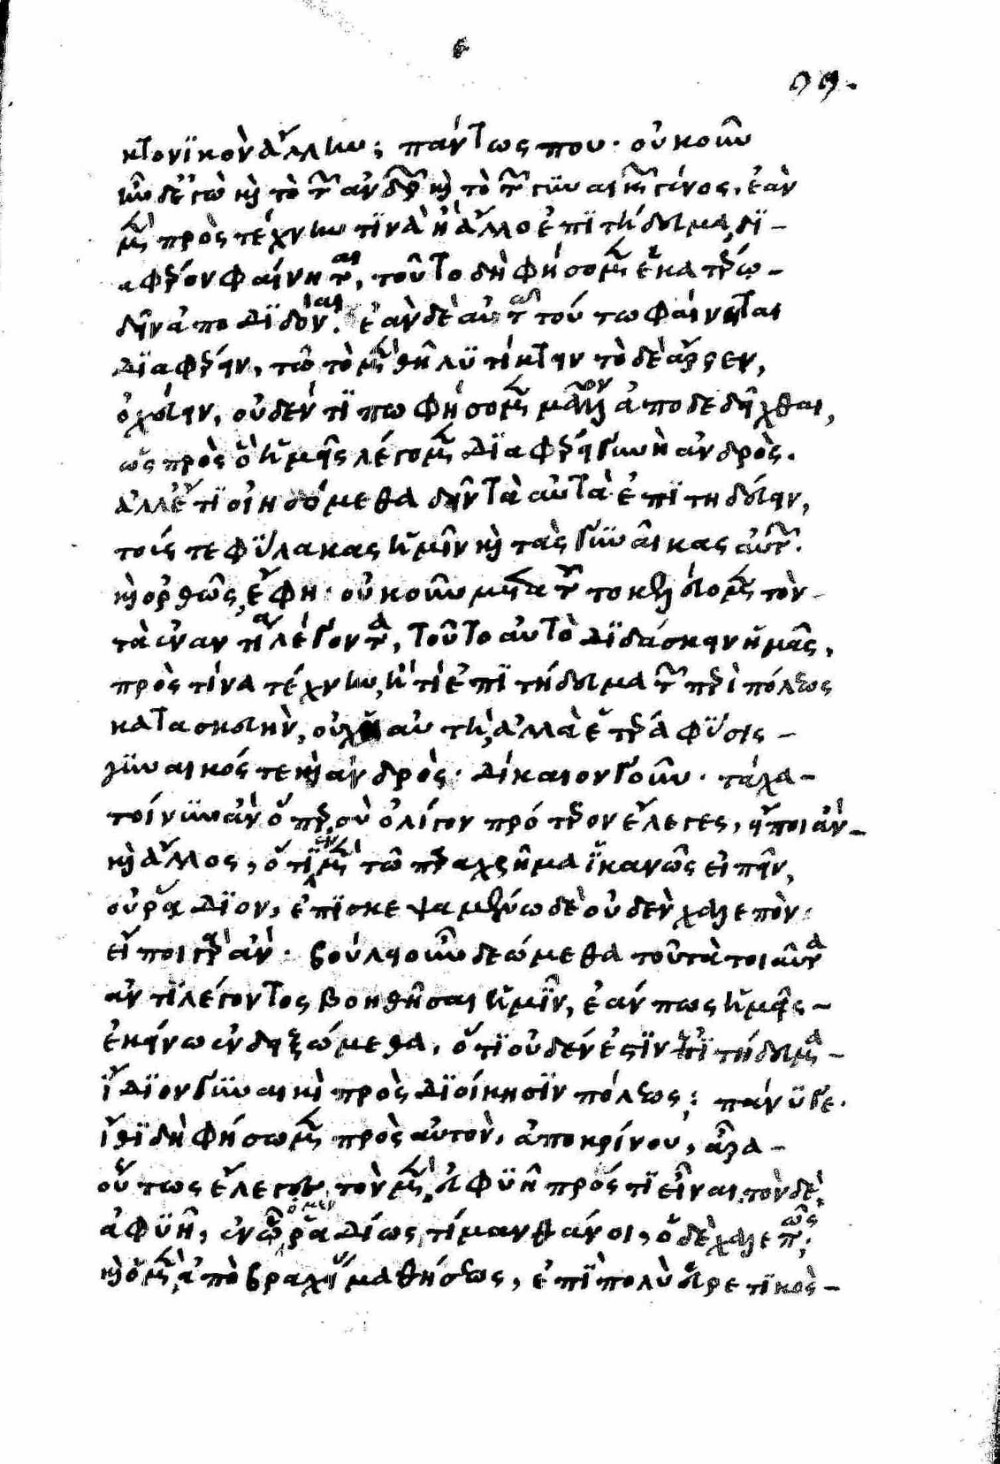 ε
99.
κτονικὸν ἄλλην; πάντως που. οὐκοῦν
ἦν δ' ἐγὼ καὶ τὸ τῶν ἀνδρῶν καὶ τὸ τῶν γυναικῶν γένος, ἐὰν
μὲν πρὸς τέχνην τινὰ ἢ ἄλλο ἐπιτήδευμα δι-
αφέρον φαίνηται, τοῦτο δὴ φήσομεν ἑκατέρω-
δεῖν ἀποδιδόναι. ἐὰν δὲ αὐτῶ τούτω φαίνηται
διαφέρειν, τῶ τὸ μὲν θῆλυ τίκτειν τὸ δὲ ἄρρεν,
ὀχεύειν, οὐδέν τί πω φήσομεν μᾶλλον ἀποδεδεῖχθαι,
ὡς πρὸς ὃ ἡμεῖς λέγομεν διαφέρει γυνὴ ἀνδρὸς.
ἀλλ' ἔτι οἰησόμεθα δεῖν τὰ αὐτὰ ἐπιτηδεύειν,
τούς τε φύλακας ἡμῖν καὶ τὰς γυναῖκας αὐτῶν.
καὶ ὀρθῶς, ἔφη. οὐκοῦν μετὰ τοῦτο κελεύομεν τὸν
τὰ ἐναντία λέγοντα, τοῦτο αὐτὸ διδάσκειν ἡμᾶς,
πρὸς τίνα τέχνην, ἢ τί ἐπιτήδευμα τῶν περὶ πόλεως
κατασκευὴν, οὐχ ἡ αὐτὴ, ἀλλὰ ἑτέρα φύσις
γυναικός τε καὶ ἀνδρὸς. δίκαιον γοῦν. τάχα
τοίνυν ἂν ὅπερ σὺ ὀλίγον πρότερον ἔλεγες, εἴποι ἂν
καὶ ἄλλος, ὅτι ἐν μὲν τῶ παραχρῆμα ἱκανῶς εἰπεῖν,
οὐ ῥάδιον, ἐπισκεψαμένω δὲ οὐδὲν χαλεπόν.
εἴποι γὰρ ἂν. βούλει οὖν δεώμεθα τοῦ τὰ τοιαῦτα
ἀντιλέγοντος βοηθῆσαι ἡμῖν, ἐάν πως ἡμεῖς
ἐκείνω ἐνδειξώμεθα, ὅτι οὐδέν ἐστιν ἐπιτήδευμα
ἴδιον γυναικὶ πρὸς διοίκησιν πόλεως; πάνυ γε.
ἴθι δὴ φήσωμεν πρὸς αὐτὸν, ἀποκρίνου, ἆρα
οὕτως ἔλεγες τὸν μὲν εὐφυῆ πρός τι εἶναι, τὸν δὲ
ἀφυῆ, ἐν ᾧ ὁ μὲν ῥαδίως τὶ μανθάνοι, ὁ δὲ χαλεπῶς;
καὶ ὁ μὲν ἀπὸ βραχείας μαθήσεως, ἐπὶ πολὺ εὑρετικὸς